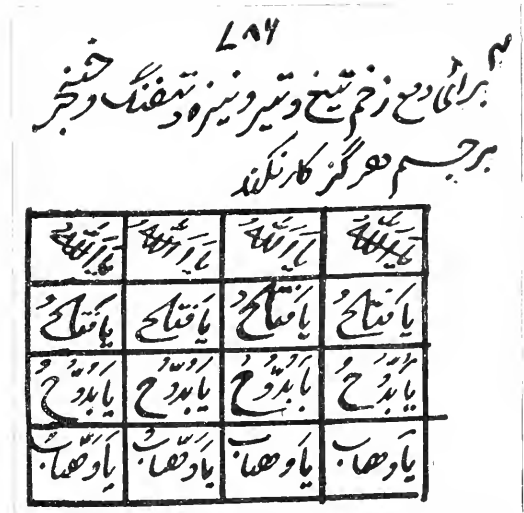 ۷۸۶
۳ برائی دفع زخم تیغ و تیر و نیزه و تفنگ و خنجر
بر جسم هرگز کار نکند
یا اَللّٰهُ یا اَللّٰهُ یا اَللّٰهُ یا اَللّٰهُ
یا فَتاحُ یا فَتاحُ یا فَتاح یا فَتاحُ
یا بُدُّوحُ یا بُدُّوحُ یا بُدُّوحُ یا بُدُّوحُ
یا وهاب یا وهاب یا وَهّابُ یا وَهّابُ